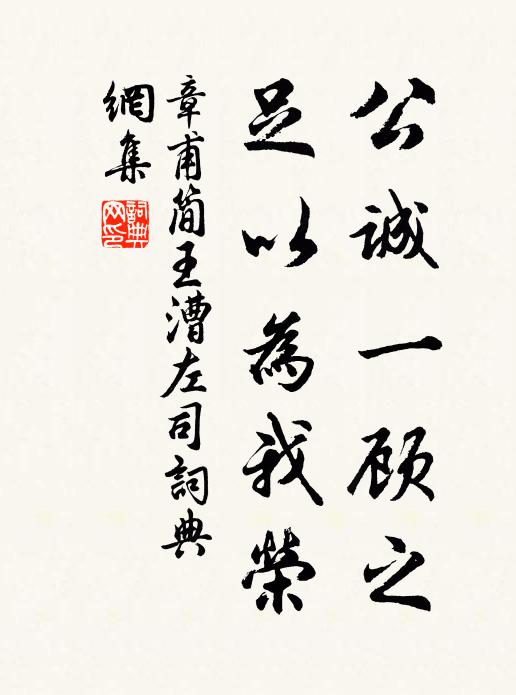 公誠一顾之
足以為我榮
章甫简王漕左司詞典
網集
詞典网印